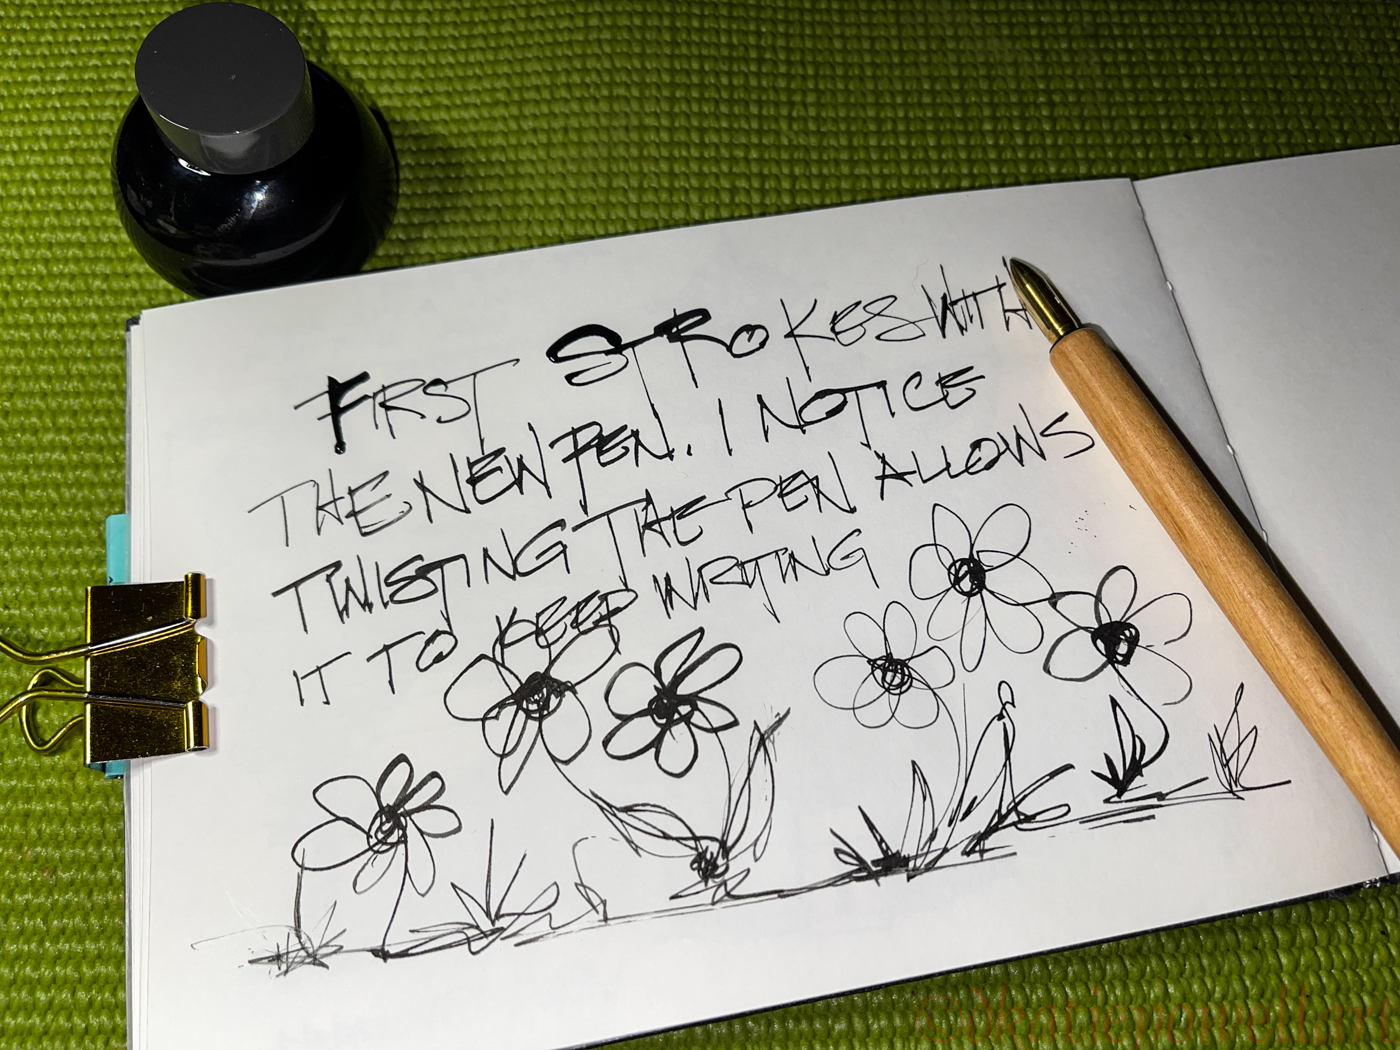 FIRST STROKES WITH
THE NEW PEN. I NOTICE
TWISTING THE PEN ALLOWS
IT TO KEEP WRITING